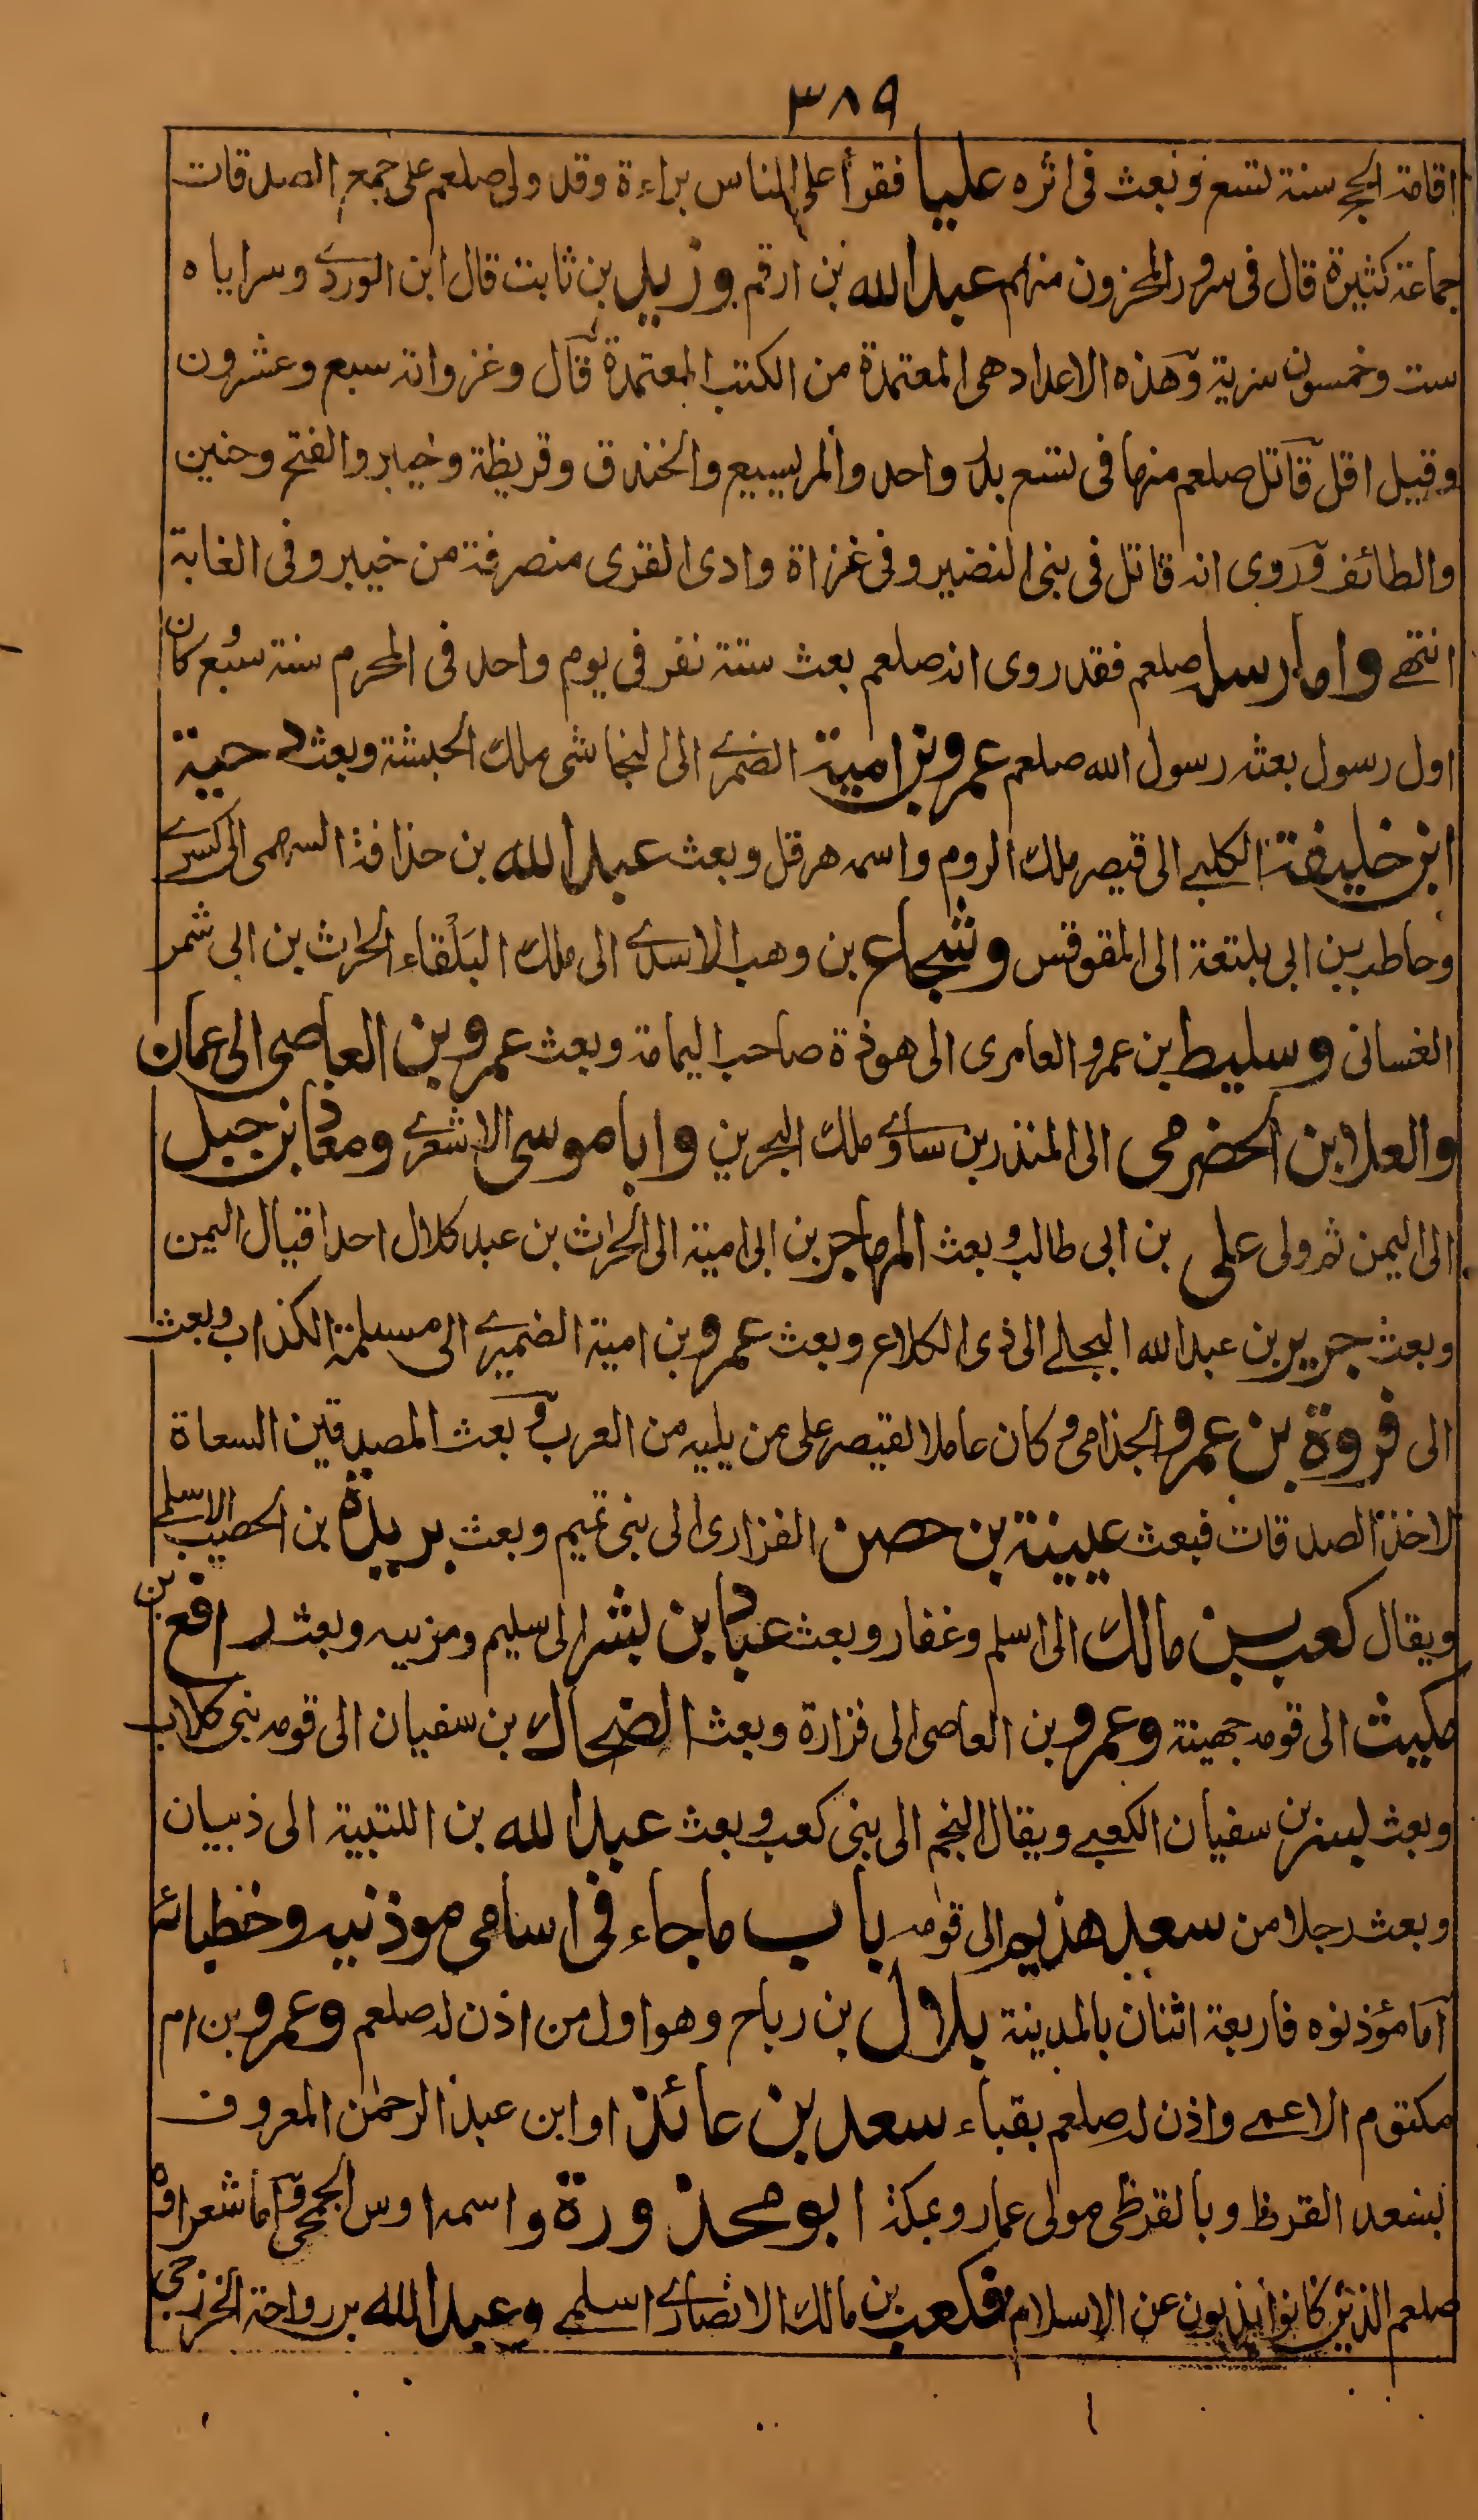 ٣٨٩
اقامة الحج سنة تسع وبعث فى اثره عليا فقرأ على الناس براءة وقد ولى صلعم على جمع الصدقات
جماعة كثيرة قال فى سرور المحزون منهم عبد الله بن ارقم وزيد بن ثابت قال ابن الوردى وسراياه
ست وخمسون سرية وهذه الاعداد هى المعتمدة من الكتب المعتمدة قال وغزواته سبع وعشرون
وقيل اقل قاتل صلعم منها فى تسع بدر واحد والمريسيع والخندق وقريظة وخيبر والفتح وحنين
والطائف وروى انه قاتل فى بنى النضير وفى غزاة وادى القرى منصرفة من خيبر وفى الغابة
انتهى واما رسله صلعم فقد روى انه صلعم بعث ستة نفر فى يوم واحد فى المحرم سنة سبع كان
اول رسول بعثه رسول الله صلعم عمرو بن امية الضمرى الى النجاشى ملك الحبشة وبعث دحية
ابن خليفة الكلبى الى قيصر ملك الروم واسمه هرقل وبعث عبد الله بن حذافة السهمى الى كسرى
وحاطب بن ابى بلتعة الى المقوقس وشجاع بن وهب الاسدى الى ملك البلقاء الحارث بن ابى شمر
الغسانى وسليط بن عمرو العامرى الى هوذة صاحب اليمامة وبعث عمرو بن العاصى الى عمان
والعلا ابن الحضرمى الى المنذر بن ساوى ملك البحرين وابا موسى الاشعرى ومعاذ بن جبل
الى اليمن ثم ولى على بن ابى طالب وبعث المهاجر بن ابى امية الى الحارث بن عبد كلال احد اقيال اليمن
وبعث جرير بن عبد الله البجلى الى ذى الكلاع وبعث عمرو بن امية الضميرى الى مسيلمة الكذاب وبعث
الى فروة بن عمرو الجذامى وكان عاملا لقيصر على من يليه من العرب وبعث المصدقين السعاة
لاخذ الصدقات فبعث عيينة بن حصن الفزارى الى بنى تميم وبعث بريدة بن الحصيب الاسلمى
ويقال كعب بن مالك الى اسلم وغفار وبعث عباد بن بشر الى سليم ومزينه وبعث رافع بن
مكيث الى قومه جهينة وعمرو بن العاصى الى فزارة وبعث الضحاك بن سفيان الى قومه بنى كلاب
وبعث بسر بن سفيان الكعبى ويقال النجم الى بنى كعب وبعث عبد الله بن اللتبية الى ذبيان
وبعث رجلا من سعد هذيم الى قومه باب ما جاء فى اسامى موذنيه وخطبائه
اما مؤذنوه فاربعة اثنان بالمدينة بلال بن رباح وهو اول من اذن له صلعم وعمرو بن ام
مكتوم الاعمى واذن له صلعم بقباء سعد بن عائذ او ابن عبد الرحمن المعروف
بسعد القرظ وبالقرظى مولى عمار وبمكة ابو محذورة واسمه اوس الجمحى واما شعراؤه
صلعم الذين كانوا يذبون عن الاسلام فكعب بن مالك الانصارى اسلمى وعبد الله بن رواحة الخزرجى